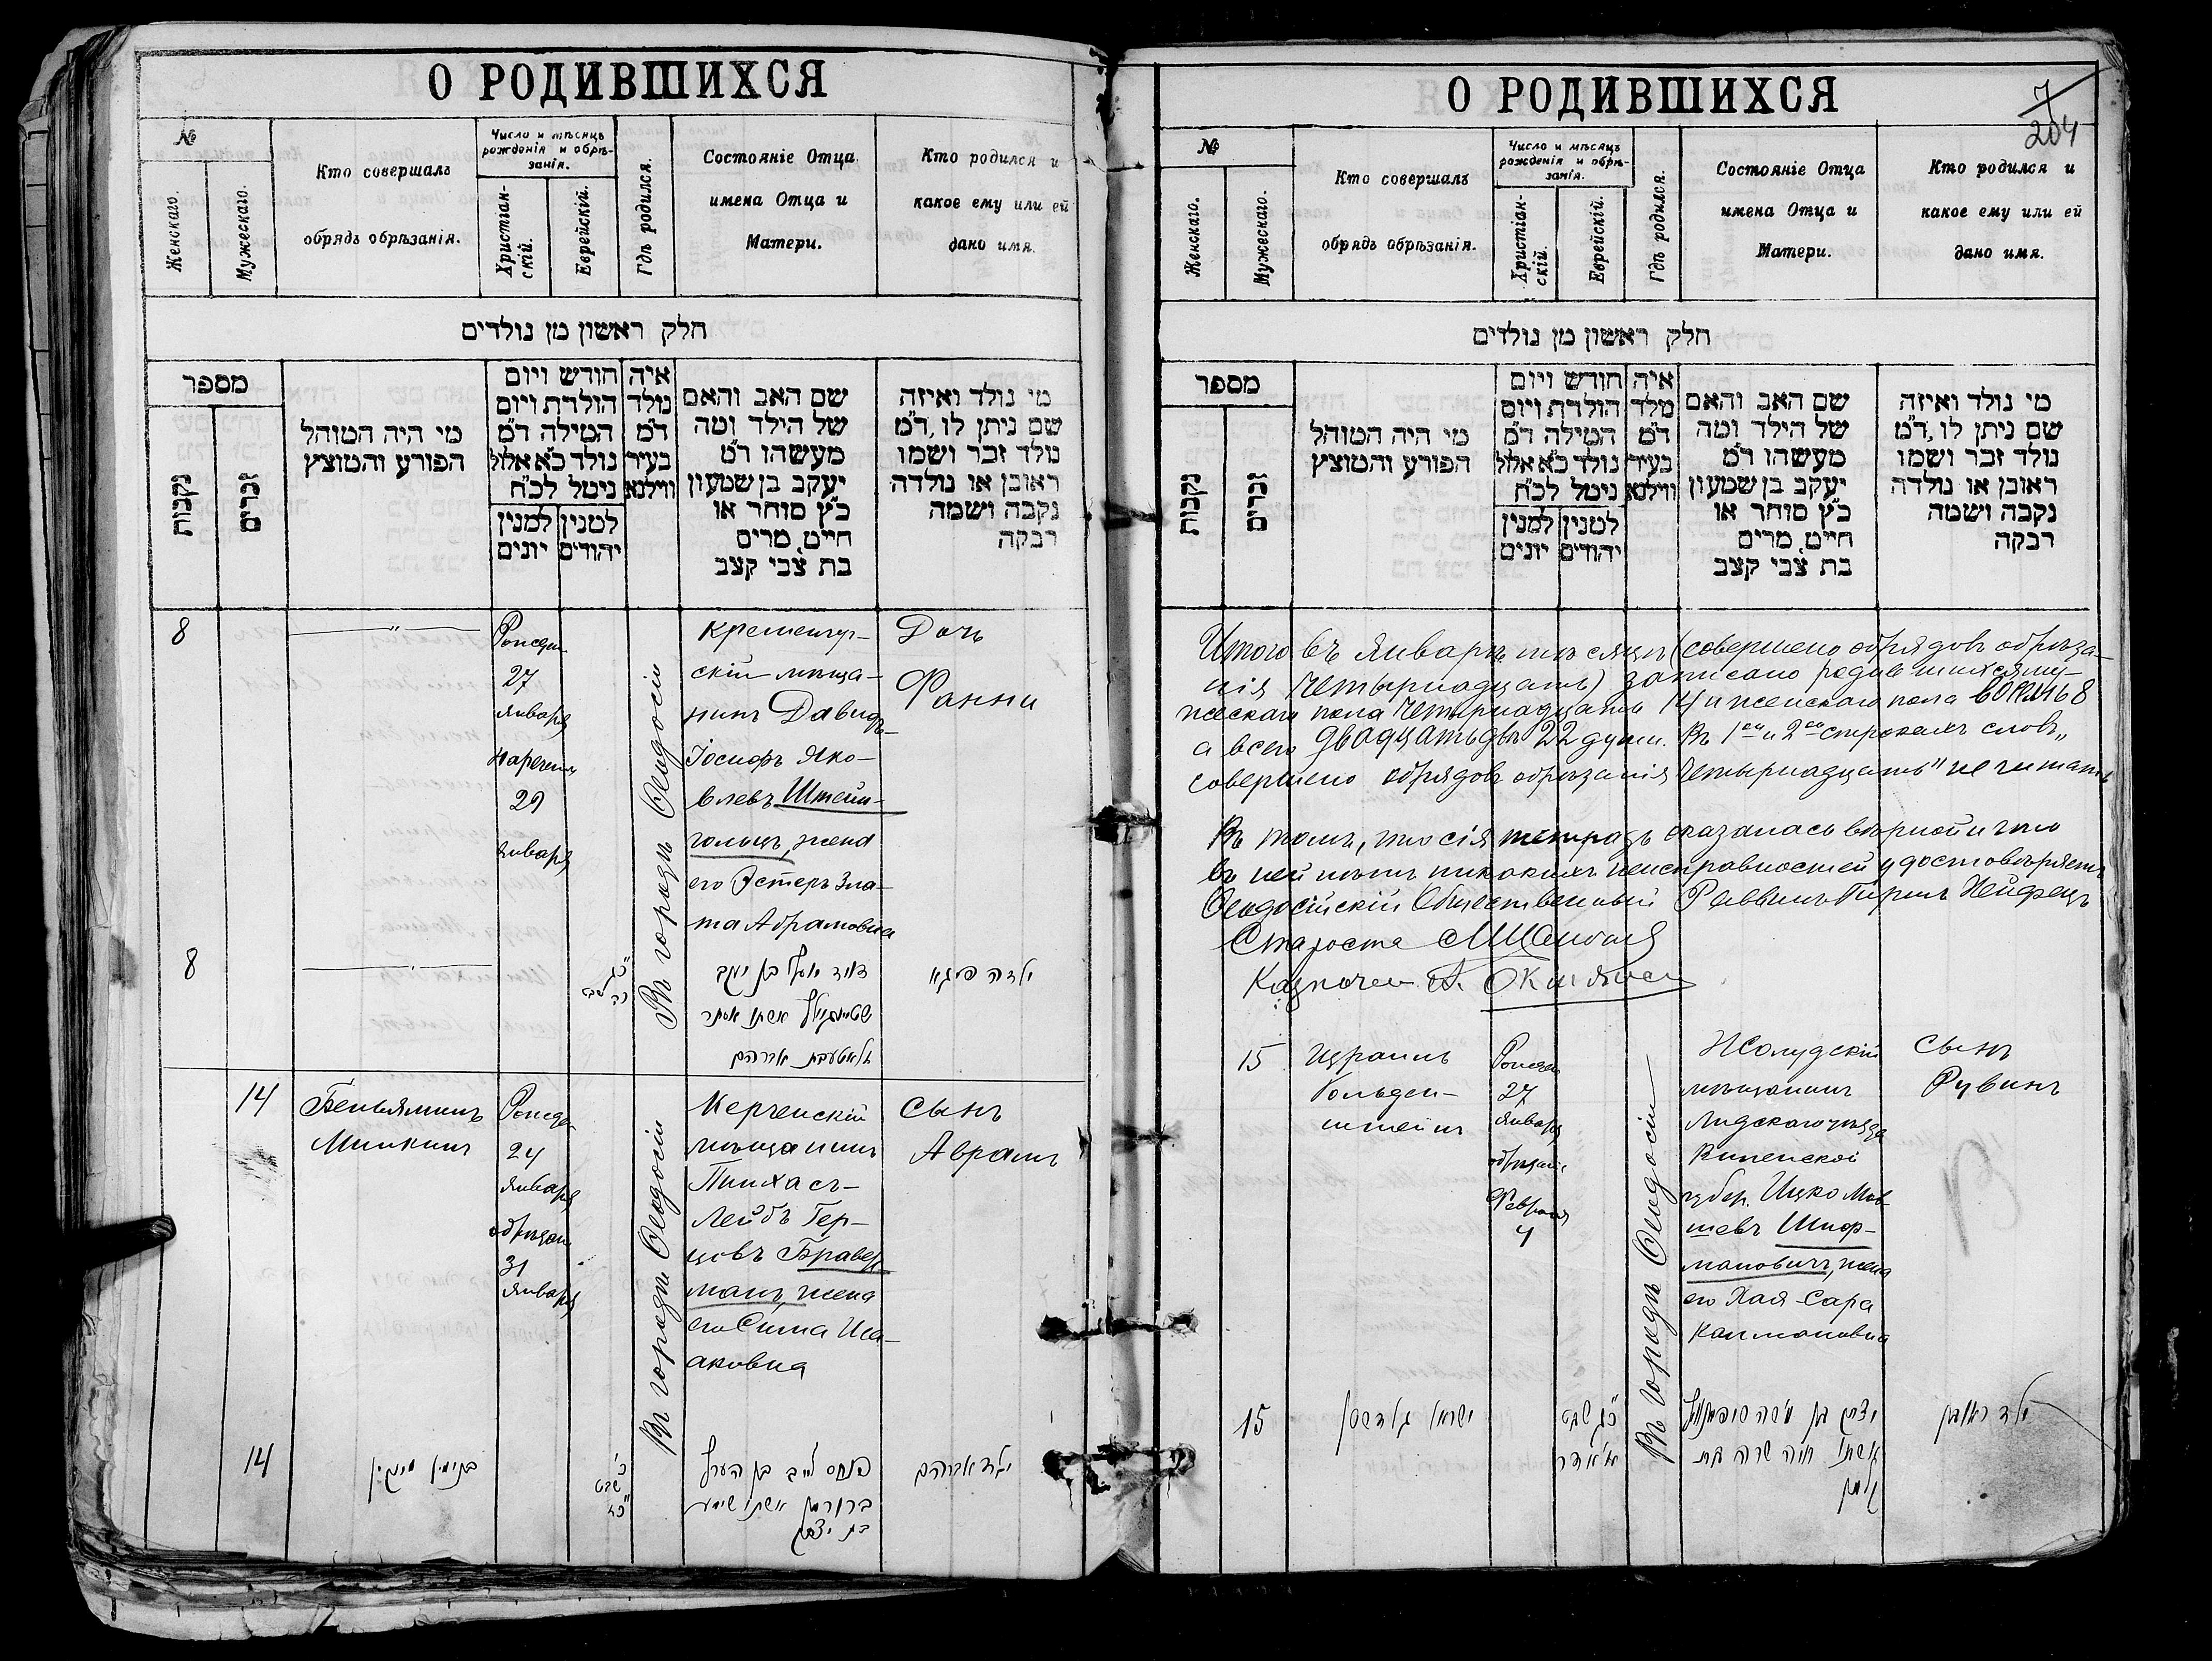 О РОДИВШИХСЯ
№
Женскаго.
Мужескаго.
Кто совершалъ
обрядъ обрѣзанія.
Число и мѣсяцъ
рожденія и обрѣ-
занія.
Христіан-
скій.
Еврейскій.
Гдѣ родился.
Состояніе Отца
имена Отца и
Матери.
Кто родился и
какое ему или ей
дано имя.
חלק ראשון מן נולדים
מספר
נקבות
זכרים
מי היה המוהל
הפורע והמוצץ
חודש ויום
הולדת ויום
המילה ד״מ
נולד כ״א אלול
ניטל לכ״ח
למנין יהודים
למנין יונים
איה
נולד
ד״מ
בעיר
ווילנא
שם האב והאם
של הילד ומה
מעשהו ד״מ
יעקב בן שמעון
כ״ץ סוחר או
חייט, מרים
בת צבי קצב
מי נולד ואיזה
שם ניתן לו, ד״מ
נולד זכר ושמו
ראובן או נולדה
נקבה ושמה
רבקה
8
27
Января
нареченія
29
Января
Въ городѣ Ѳеодосіи
Кременчуг-
скій мѣща-
нинъ Давидъ-
Іосифъ Яко-
влевъ Штейн-
гольцъ, жена
его Эстеръ Зла-
та Абрамовна
Дочь
Фанни
8
כ״ג
שבט
דוד יוסף בן יעקב
אשתו אסתר
זלאטע בת אברהם
ילדה פייגא
14
Беньяминъ
Минкинъ
24
Января
обрѣзан
31
Января
Въ городѣ Ѳеодосіи
Керченскій
мѣщанинъ
Пинхасъ-
Лейбъ Гер-
цовъ Бравер-
манъ, жена
его Сима Иса-
аковна
Сынъ
Аврамъ
14
בנימין מינקין
כ׳
שבט
כ״ז
פנחס לייב בן הערץ
ברוורמן אשתו סימע
בת יצחק
ילד אברהם
О РОДИВШИХСЯ
7
204
№
Женскаго.
Мужескаго.
Кто совершалъ
обрядъ обрѣзанія.
Число и мѣсяцъ
рожденія и обрѣ-
занія.
Христіан-
скій.
Еврейскій.
Гдѣ родился.
Состояніе Отца
имена Отца и
Матери.
Кто родился и
какое ему или ей
дано имя.
חלק ראשון מן נולדים
מספר
נקבות
זכרים
מי היה המוהל
הפורע והמוצץ
חודש ויום
הולדת ויום
המילה ד״מ
נולד כ״א אלול
ניטל לכ״ח
למנין יהודים
למנין יונים
איה
נולד
ד״מ
בעיר
ווילנא
שם האב והאם
של הילד ומה
מעשהו ד״מ
יעקב בן שמעון
כ״ץ סוחר או
חייט, מרים
בת צבי קצב
מי נולד ואיזה
שם ניתן לו, ד״מ
נולד זכר ושמו
ראובן או נולדה
נקבה ושמה
רבקה
Итого въ Январѣ мѣсяцѣ (совершено обрядовъ обрѣза-
нія четырнадцать) записано родившихся му-
жескаго пола четырнадцать 14 и женскаго пола восемь 8
а всего двадцать двѣ 22 души. Въ 1ой и 2ой строкахъ словъ „
совершено обрядовъ обрѣзанія четырнадцать" не читать
Въ томъ, что сія тетрадь оказалась вѣрной и что
въ ней нѣтъ никакихъ неисправностей удостовѣряетъ
Ѳеодосійскій Общественный Раввинъ Гиршъ Нейфецъ
Староста
Казначей
15
Израиль
Гольден-
штейнъ
27
Января
обрѣзаніе
Февраля
4
Въ городѣ Ѳеодосіи
Жолудскій
мѣщанинъ
Лидскаго уѣзда
Виленской
губер. Ицко Мов-
шевъ Шиф-
мановичъ, жена
его Хая-Сара
Калмановна
Сынъ
Рувинъ
15
ישראל גאלדשטיין
כ״ג שבט
א׳ אדר
יצחק בן משה
אשתו חיה שרה בת
קלמן
ילד ראובן